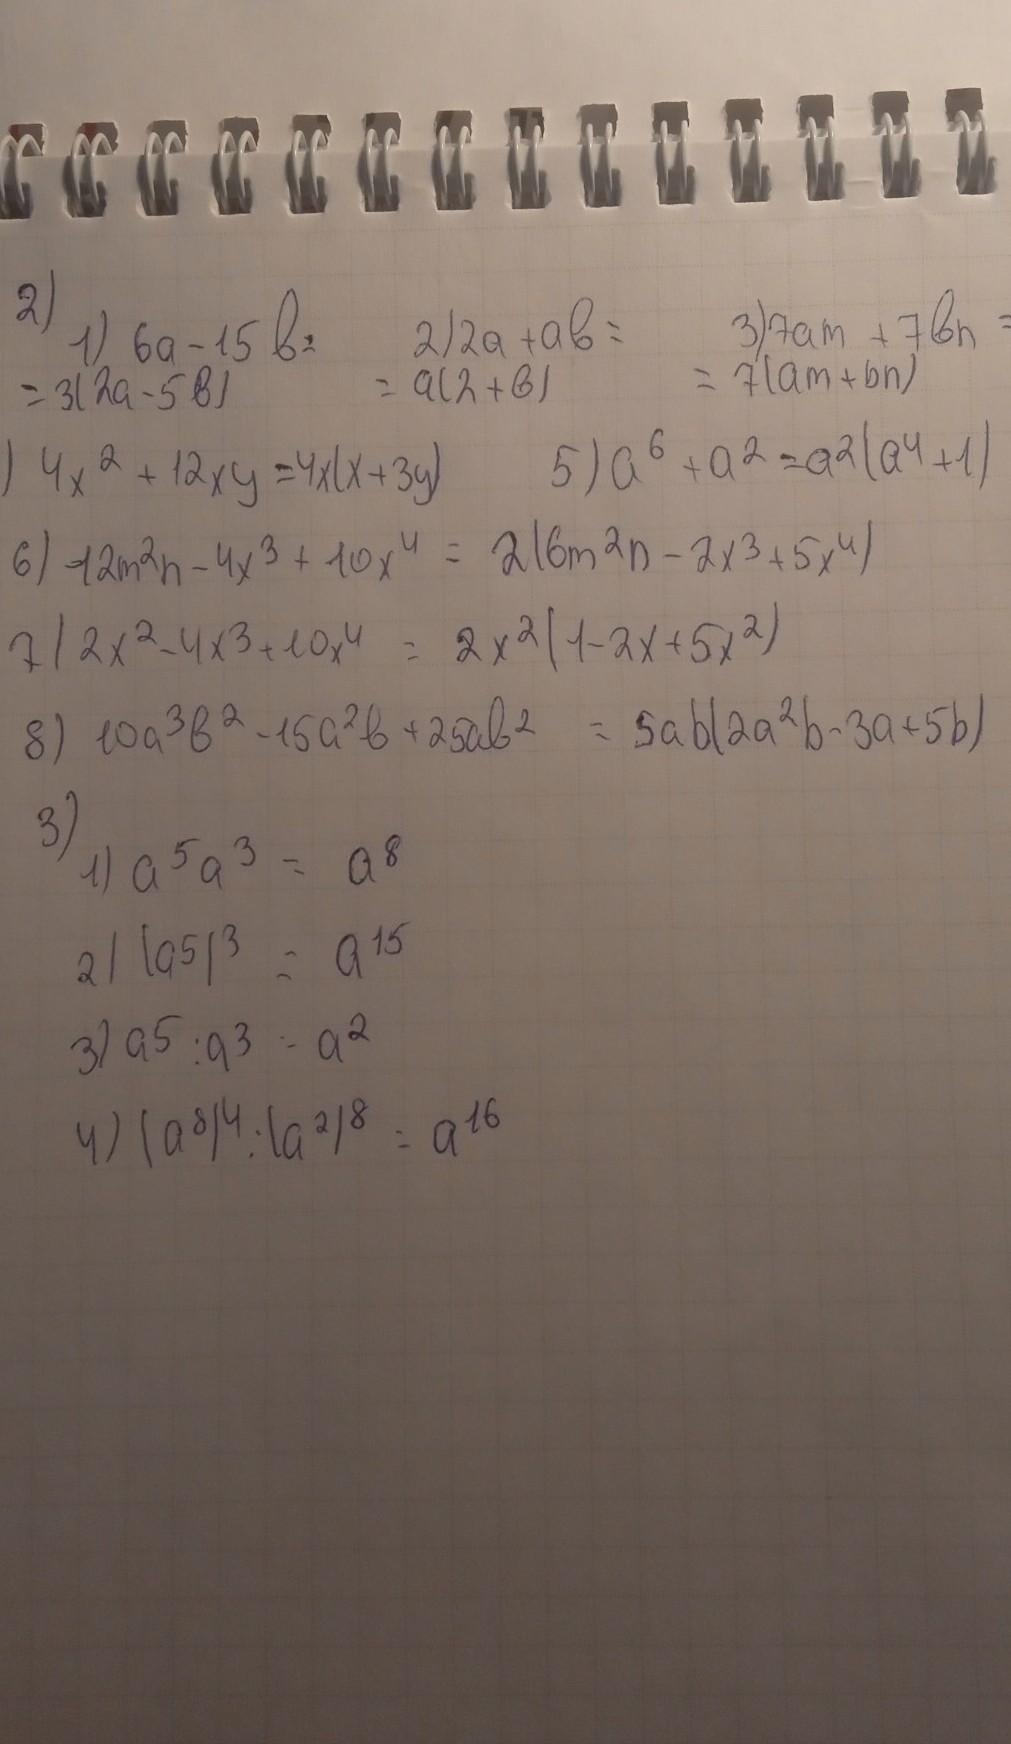 2)
1) 6a - 15b = 2) 2a + ab = 3) 7am + 7bn =
= 3(2a - 5b) = a(2 + b) = 7(am + bn)
) 4x² + 12xy = 4x(x + 3y) 5) a⁶ + a² = a²(a⁴ + 1)
6) 12m²n - 4x³ + 10x⁴ = 2(6m²n - 2x³ + 5x⁴)
7) 2x² - 4x³ + 10x⁴ = 2x²(1 - 2x + 5x²)
8) 10a³b² - 15a²b + 25ab² = 5ab(2a²b - 3a + 5b)
3)
1) a⁵a³ = a⁸
2) (a⁵)³ = a¹⁵
3) a⁵ : a³ = a²
4) (a⁸)⁴ : (a²)⁸ = a¹⁶